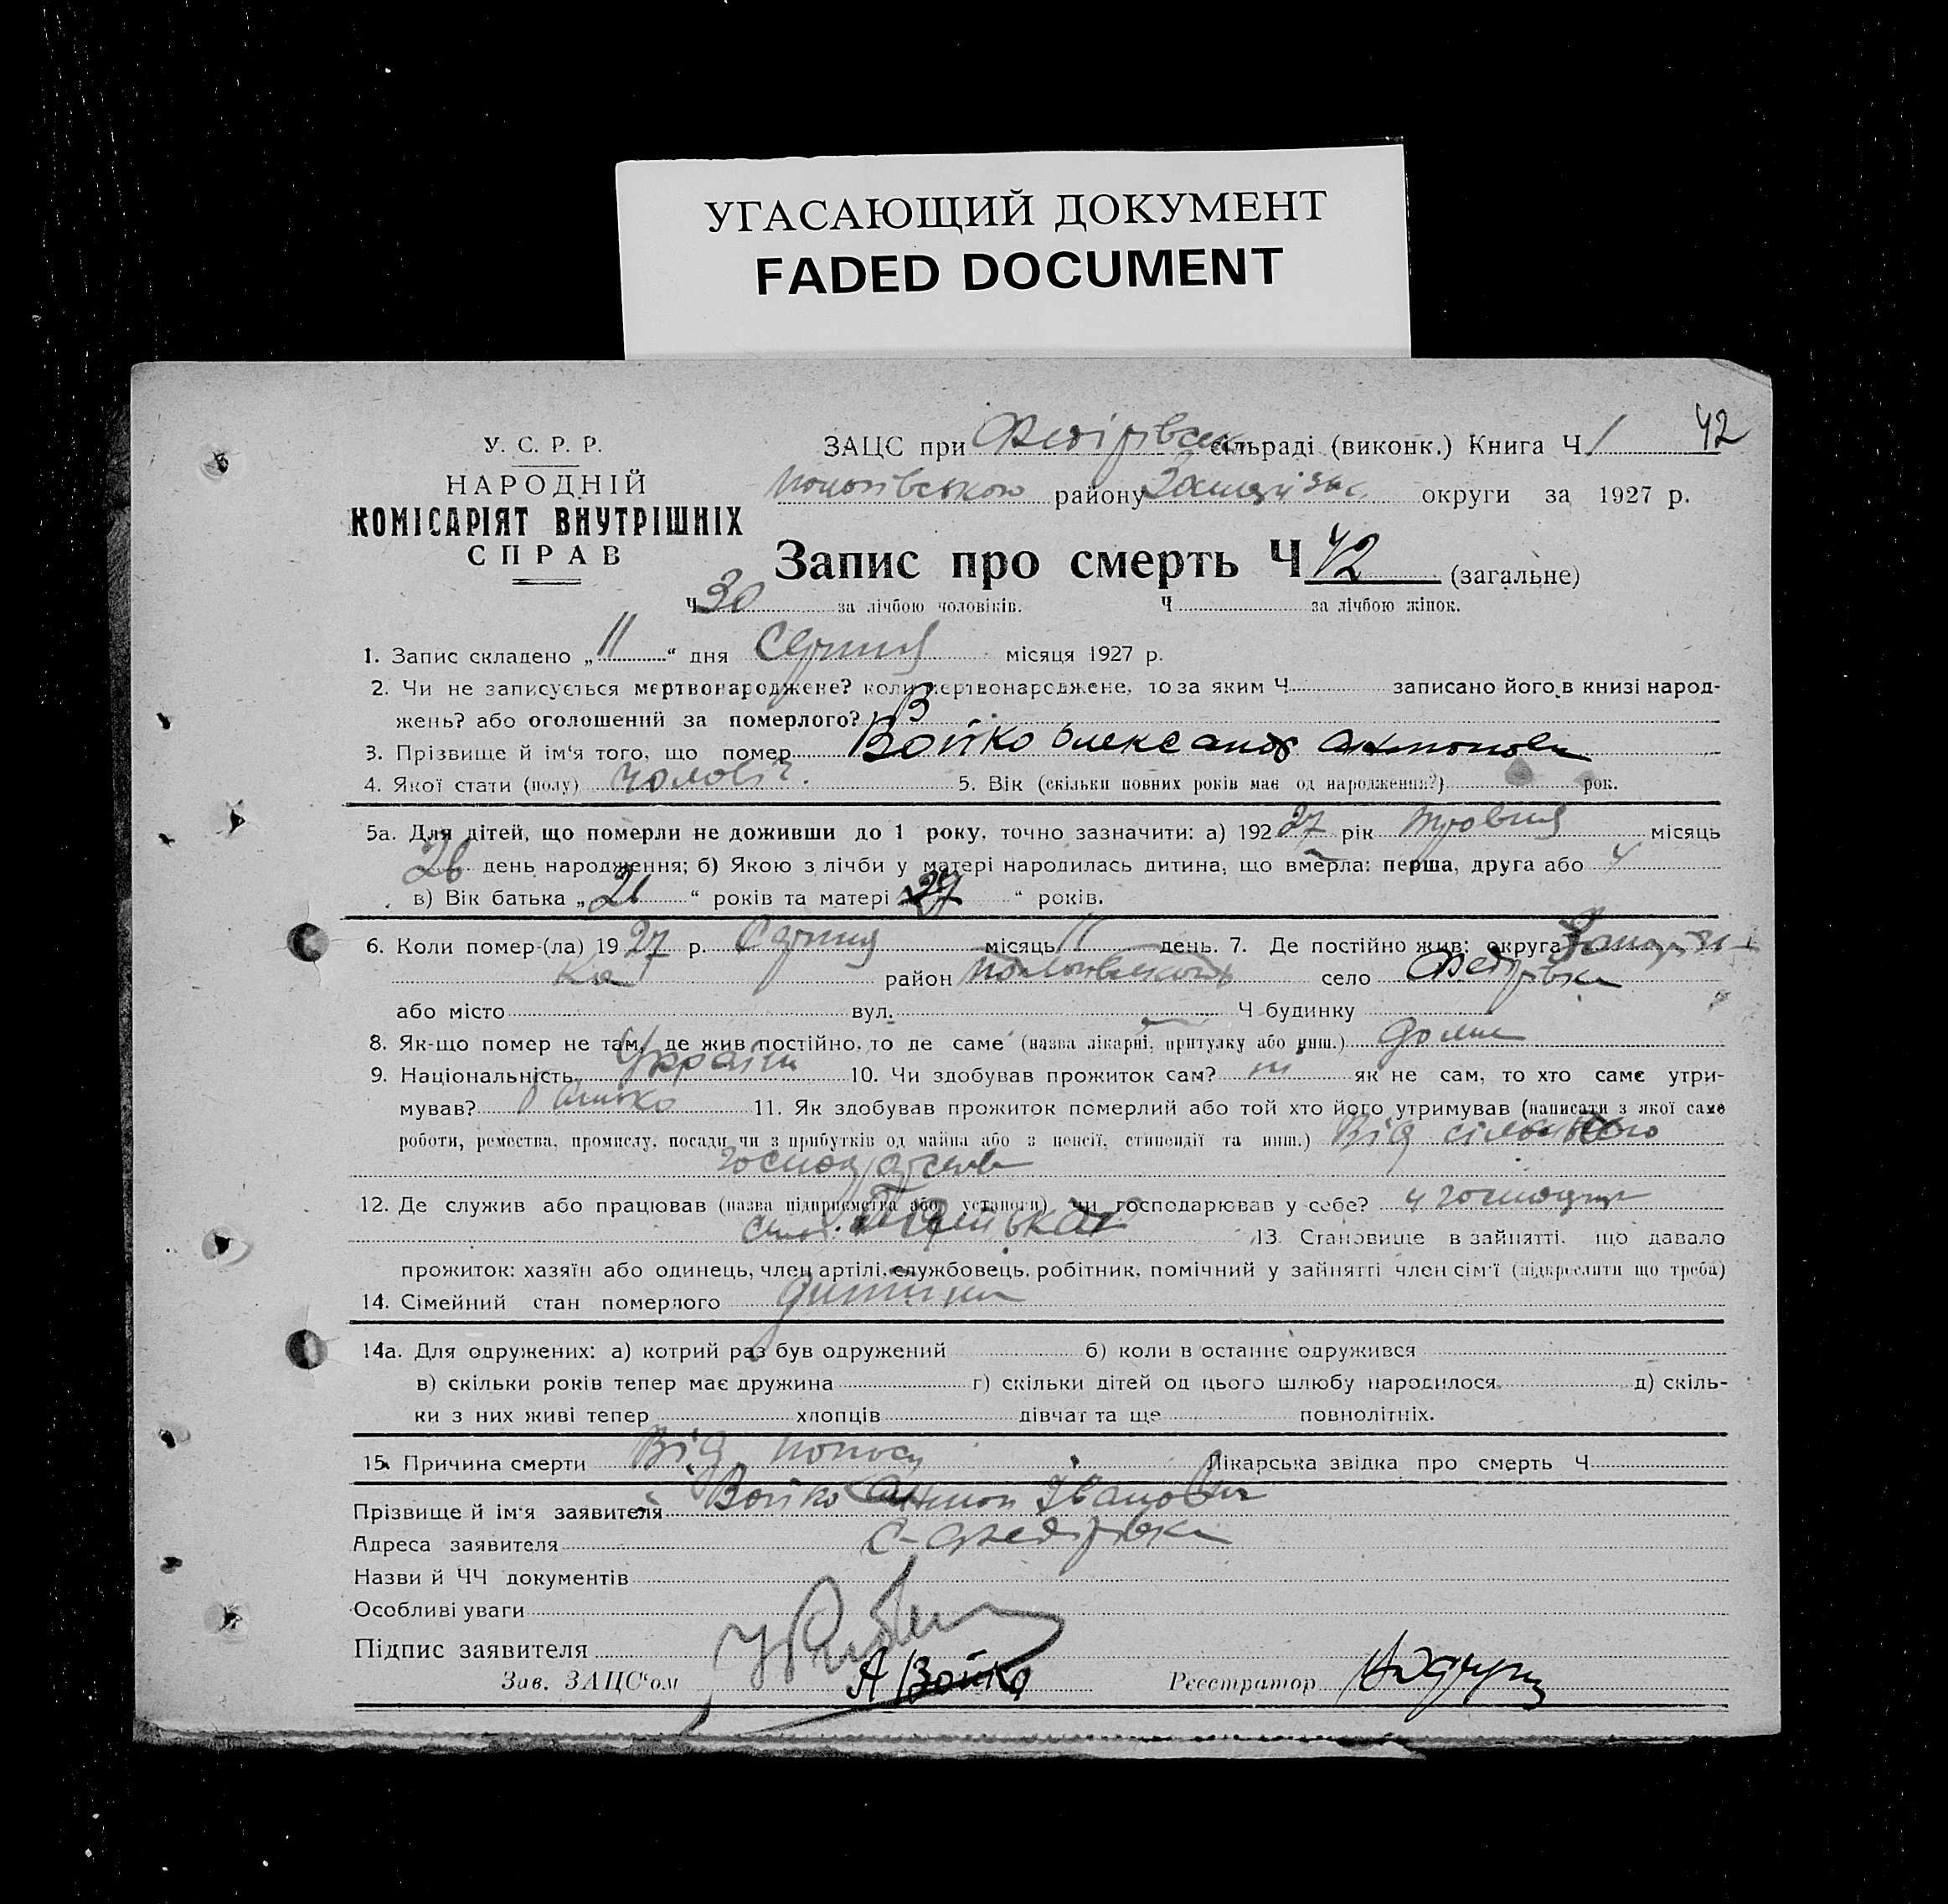 УГАСАЮЩИЙ ДОКУМЕНТ
FADED DOCUMENT
42
У. С. Р. Р.
НАРОДНІЙ
КОМІСАРІЯТ ВНУТРІШНІХ
СПРАВ
ЗАЦС при Федірівськ. сільраді (виконк.) Книга Ч 1
району округи за 1927 р.
Запис про смерть Ч 42 (загальне)
Ч 30 за лічбою чоловіків. Ч за лічбою жінок.
1. Запис складено „11“ дня Серпня місяця 1927 р.
2. Чи не записується мертвонароджене? коли мертвонароджене, то за яким Ч записано його в книзі народ-
жень? або оголошений за померлого?
3. Прізвище й ім‘я того, що помер Бойко Олександр Антонови
4. Якої стати (полу) чоловіч. 5. Вік (скільки повних років має од народження?) рок.
5а. Для дітей, що померли не доживши до 1 року, точно зазначити: а) 192 27 рік Травня місяць
26 день народження; б) Якою з лічби у матері народилась дитина, що вмерла: перша, друга або 4
в) Вік батька „ “ років та матері 29 “ років.
6. Коли помер-(ла) 19 27 р. Серпня місяць 11 день. 7. Де постійно жив: округа
район село Федірівка
або місто вул. Ч будинку
8. Як-що помер не там, де жив постійно, то де саме (назва лікарні, притулку або инш.) дома
9. Національність Україн 10. Чи здобував прожиток сам? ні як не сам, то хто саме утри-
мував? батько 11. Як здобував прожиток померлий або той хто його утримував (написати з якої саме
роботи, ремества, промислу, посади чи з прибутків од майна або з пенсії, стипендії та инш.) Від сільського
господарства
12. Де служив або працював (назва підприємства або установи) чи господарював у себе? у господар
13. Становище в зайнятті, що давало
прожиток: хазяїн або одинець, член артілі, службовець, робітник, помічний у зайнятті член сім‘ї (підкреслити що треба)
14. Сімейний стан померлого дитина
14а. Для одружених: а) котрий раз був одружений б) коли в останнє одружився
в) скільки років тепер має дружина г) скільки дітей од цього шлюбу народилося д) скіль-
ки з них живі тепер хлопців дівчат та ще повнолітніх.
15. Причина смерти Від поносу Лікарська звідка про смерть Ч
Прізвище й ім‘я заявителя Бойко Антон Іванович
Адреса заявителя с-Федірівка
Назви й ЧЧ документів
Особливі уваги
Підпис заявителя
Зав. ЗАЦС‘ом А Бойко Реєстратор